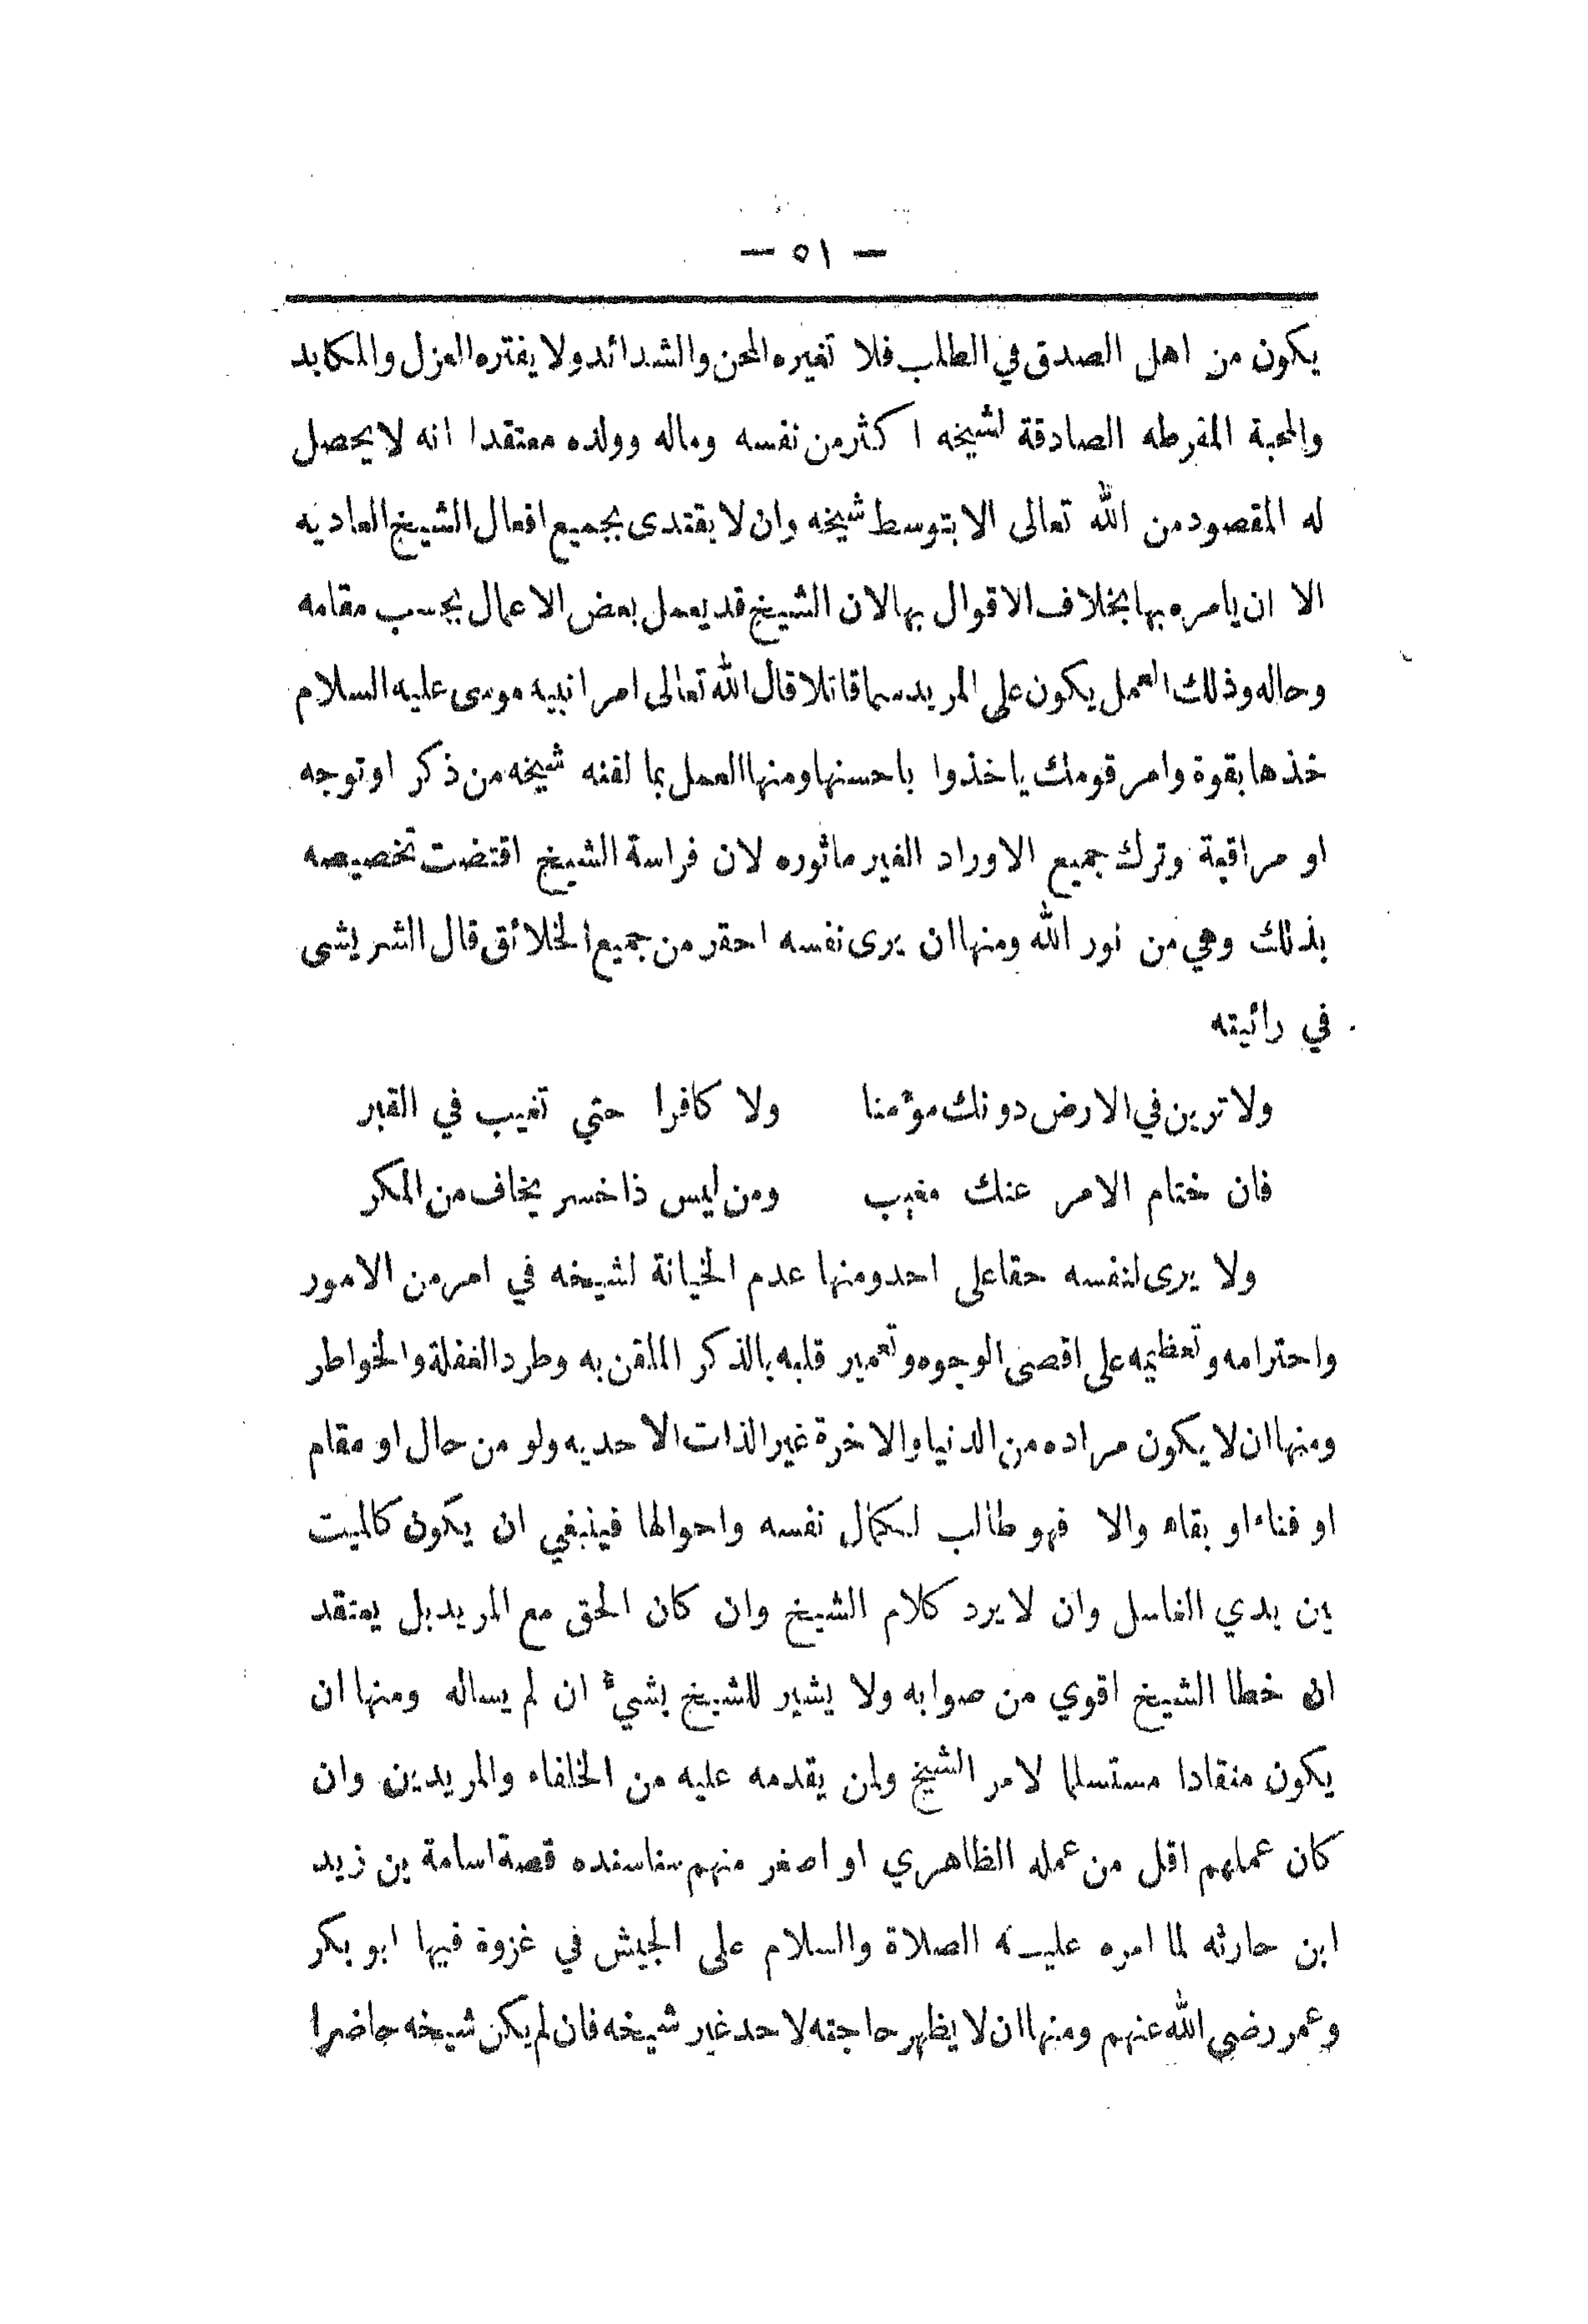 — ٥١ —
يكون من اهل الصدق في الطلب فلا تغيره المحن والشدائد ولا يفتره العزل والمكابد
والمحبة المفرطه الصادقة لشيخه اكثر من نفسه وماله وولده معتقدا انه لا يحصل
له المقصود من الله تعالى الا بتوسط شيخه وان لا يقتدى بجميع افعال الشيخ العاديه
الا ان يامره بها بخلاف الاقوال بها لان الشيخ قد يعمل بعض الاعمال بحسب مقامه
وحاله وذلك العمل يكون على المريد سما قاتلا قال الله تعالى امرا نبيه موسى عليه السلام
خذها بقوة وامر قومك ياخذوا باحسنها ومنها العمل بما لقنه شيخه من ذكر او توجه
او مراقبة وترك جميع الاوراد الغير ماثوره لان فراسة الشيخ اقتضت تخصيصه
بذلك وهي من نور الله ومنها ان يرى نفسه احقر من جميع الخلائق قال الشريشى
في رائيته
ولا ترين في الارض دونك مؤمنا ولا كافرا حتي تغيب في القبر
فان ختام الامر عنك مغيب ومن ليس ذا خسر يخاف من المكر
ولا يرى لنفسه حقا على احد ومنها عدم الخيانة لشيخه في امر من الامور
واحترامه وتعظيمه على اقصى الوجوه وتعمير قلبه بالذكر الملقن به وطرد الغفلة والخواطر
ومنها ان لا يكون مراده من الدنيا والاخرة غير الذات الاحديه ولو من حال او مقام
او فناء او بقاء والا فهو طالب لكمال نفسه واحوالها فينبغي ان يكون كالميت
بين يدي الغاسل وان لا يرد كلام الشيخ وان كان الحق مع المريد بل يعتقد
ان خطا الشيخ اقوي من صوابه ولا يشير للشيخ بشيئ ان لم يساله ومنها ان
يكون منقادا مستسلما لامر الشيخ ولمن يقدمه عليه من الخلفاء والمريدين وان
كان عملهم اقل من عمله الظاهري او اصغر منهم سنا سنده قصة اسامة بن زيد
ابن حارثه لما امره عليه الصلاة والسلام على الجيش في غزوة فيها ابو بكر
وعمر رضي الله عنهم ومنها ان لا يظهر حاجته لاحد غير شيخه فان لم يكن شيخه حاضرا